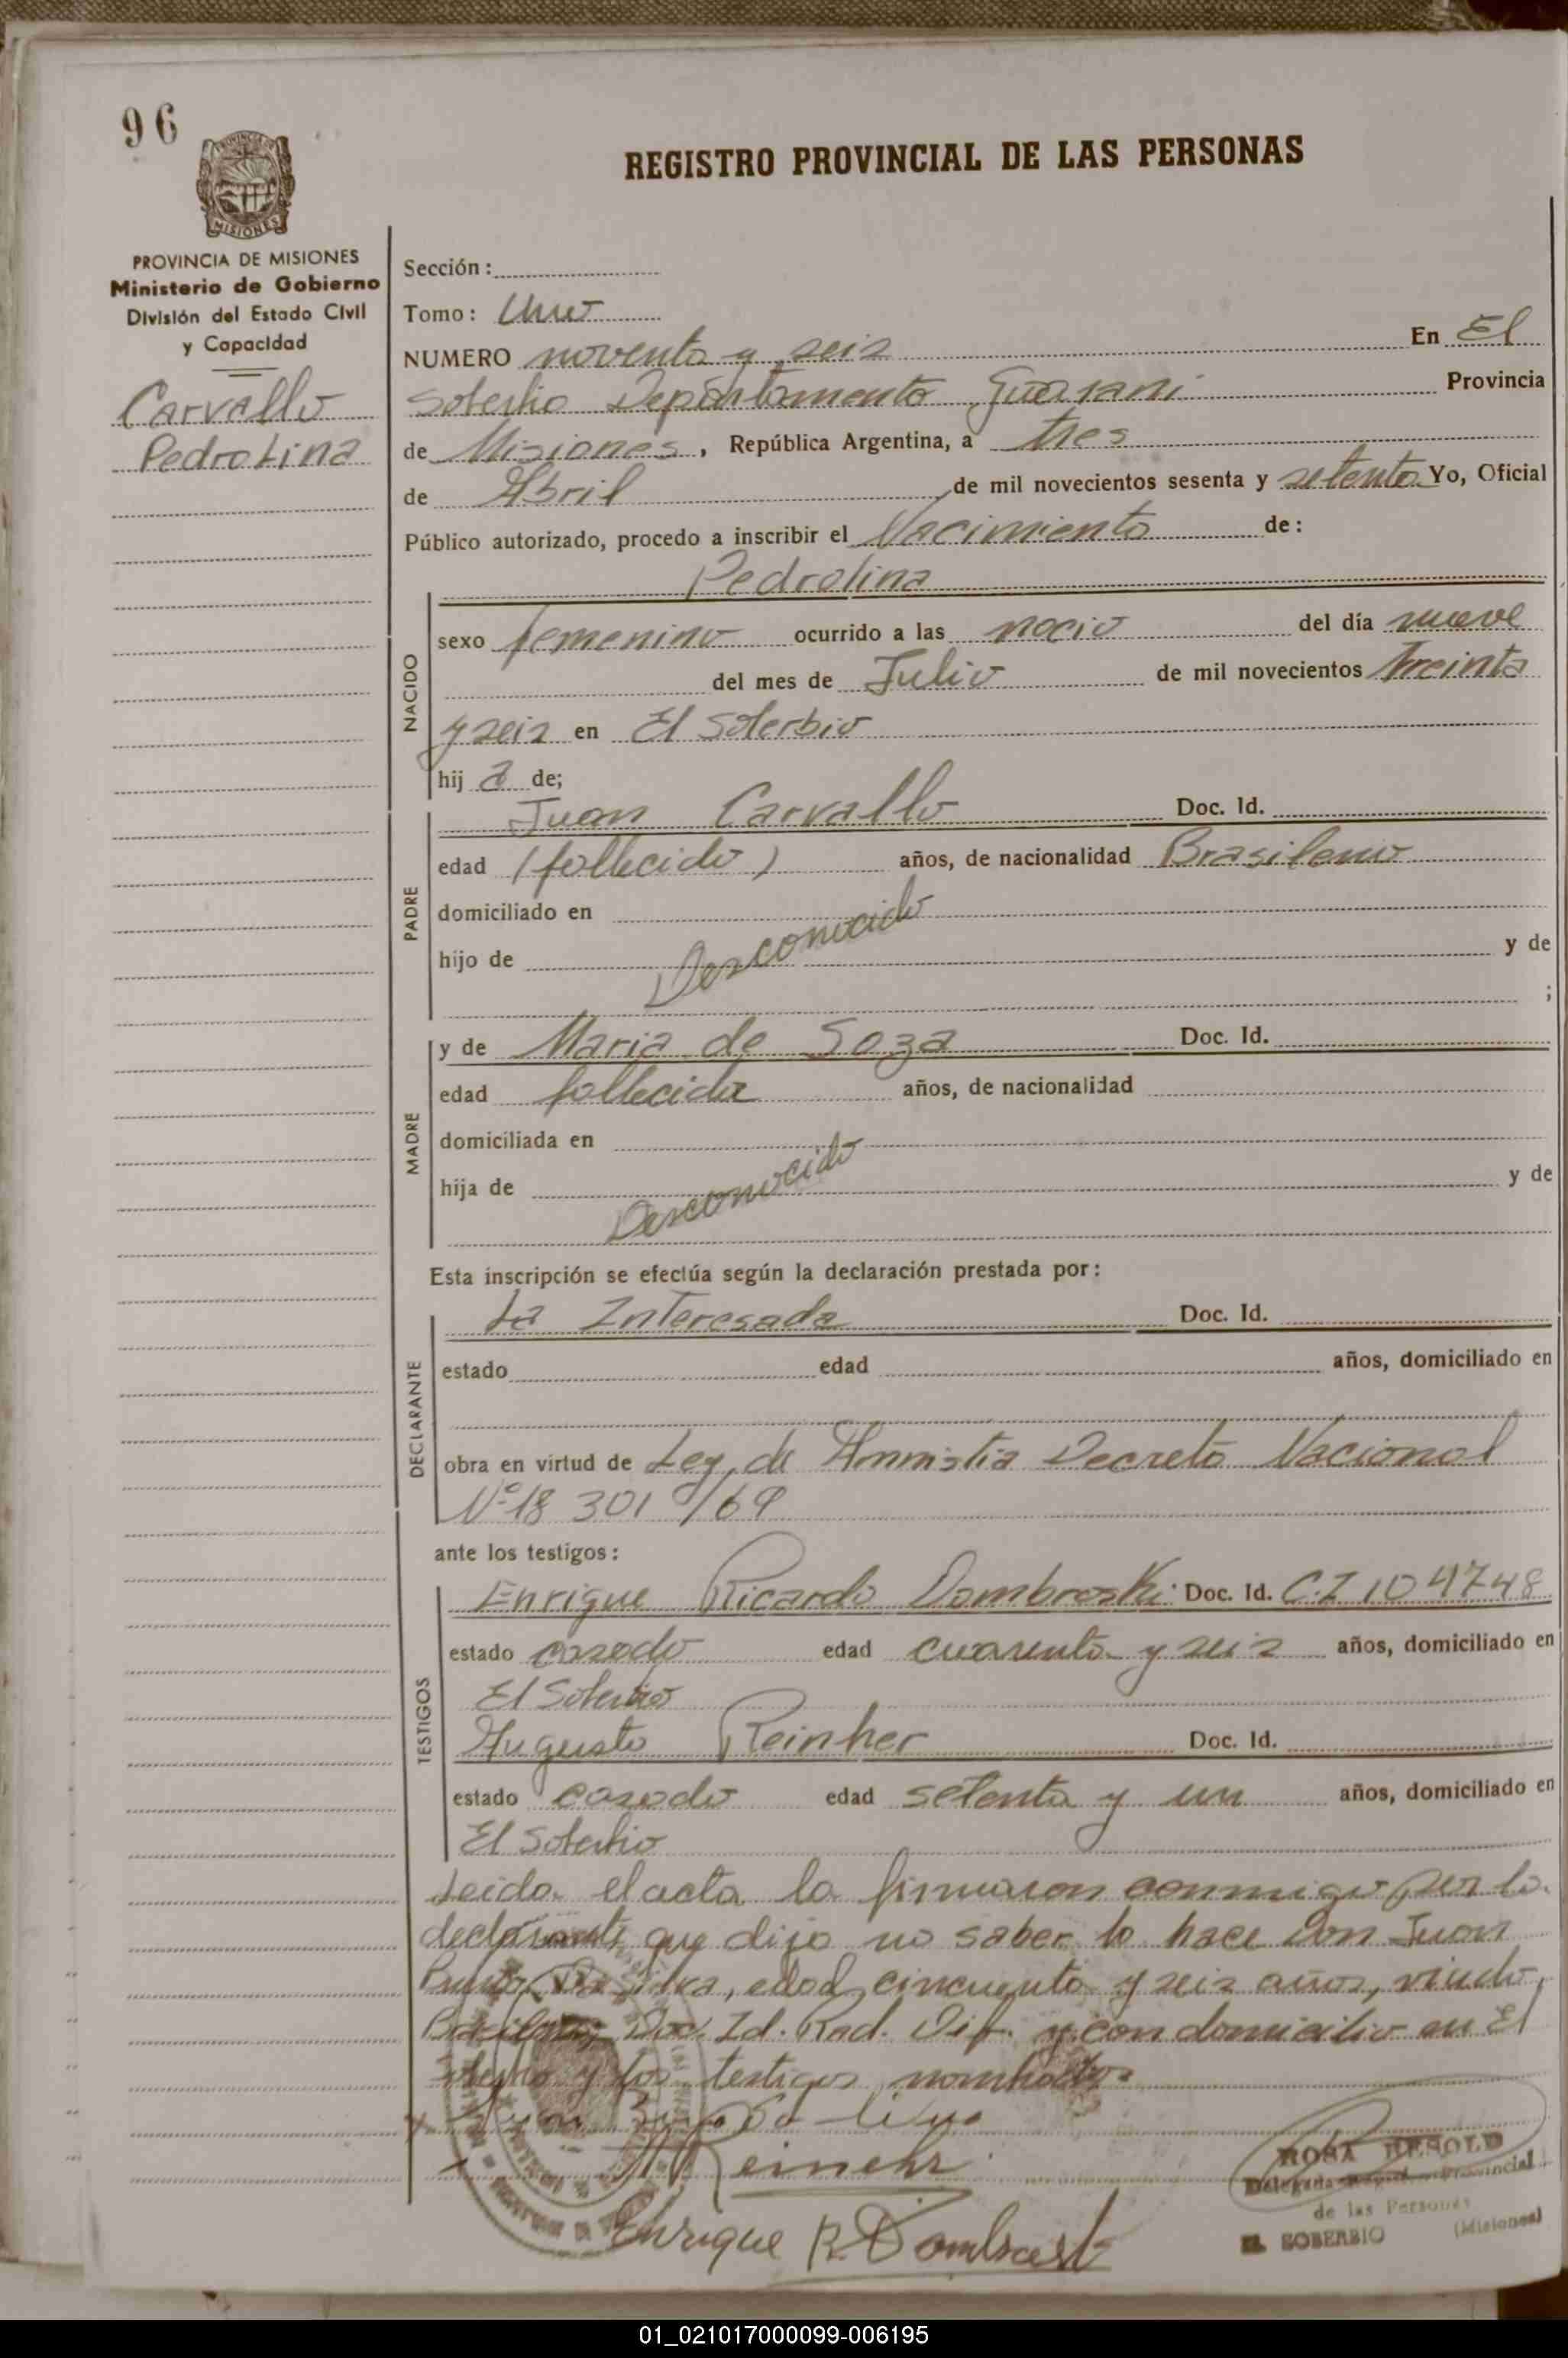 96
REGISTRO PROVINCIAL DE LAS PERSONAS
MISIONES
PROVINCIA DE MISIONES
Ministerio de Gobierno
División del Estado Civil
y Capacidad
Carvallo
Pedrolina
Sección:
Tomo: Uno
NUMERO noventa y seis En El
Soberbio Departamento Guarani Provincia
de Misiones, República Argentina, a tres
de Abril de mil novecientos sesenta y setenta Yo, Oficial
Público autorizado, procedo a inscribir el Nacimiento de:
Pedrolina
NACIDO
sexo femenino ocurrido a las nocio del día nueve
del mes de Julio de mil novecientos treinta
y seis en El Soberbio
hij a de;
PADRE
Juan Carvallo Doc. Id.
edad (fallecido) años, de nacionalidad Brasileno
domiciliado en
Desconocido
hijo de y de
;
MADRE
y de Maria de Soza Doc. Id.
edad fallecida años, de nacionalidad
domiciliada en
Desconocido
hija de y de
Esta inscripción se efectúa según la declaración prestada por:
DECLARANTE
La Interesada Doc. Id.
estado edad años, domiciliado en
obra en virtud de Ley de Amnistia Decreto Nacional
Nº 18 301/69
ante los testigos:
TESTIGOS
Enrique Ricardo Dombroski Doc. Id. C.I 104748
estado casado edad cuarenta y seis años, domiciliado en
El Soberbio
Augusto Reinher Doc. Id.
estado casado edad setenta y un años, domiciliado en
El Soberbio
Leida el acta la firmaron conmigo por la
declarante que dijo no saber lo hace Don Juan
Da Silva, edad cincuenta y seis años, viudo,
Doc. Id. Rad. Dif. y con domicilio en El
Soberbio y los testigos nombrados.
Juan da Silva
A Reinehr
Enrique R. Dombroski
ROSA HESOLD
Delegada Regist. Provincial
de las Personas
EL SOBERBIO (Misiones)
01_021017000099-006195